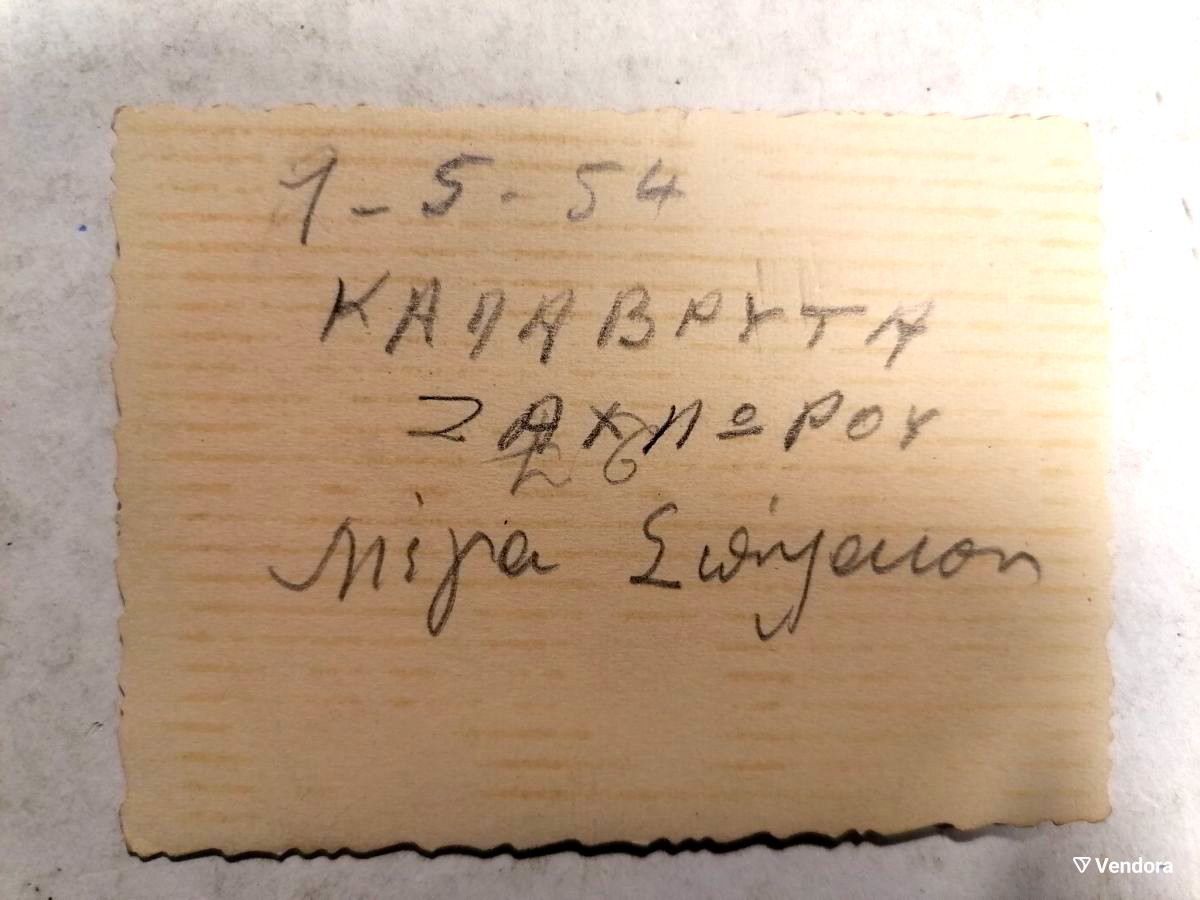 1-5-54
ΚΑΛΑΒΡΥΤΑ
ΖΑΧΛΩΡΟΥ
26
Μέγα Σπήλαιον
Vendora